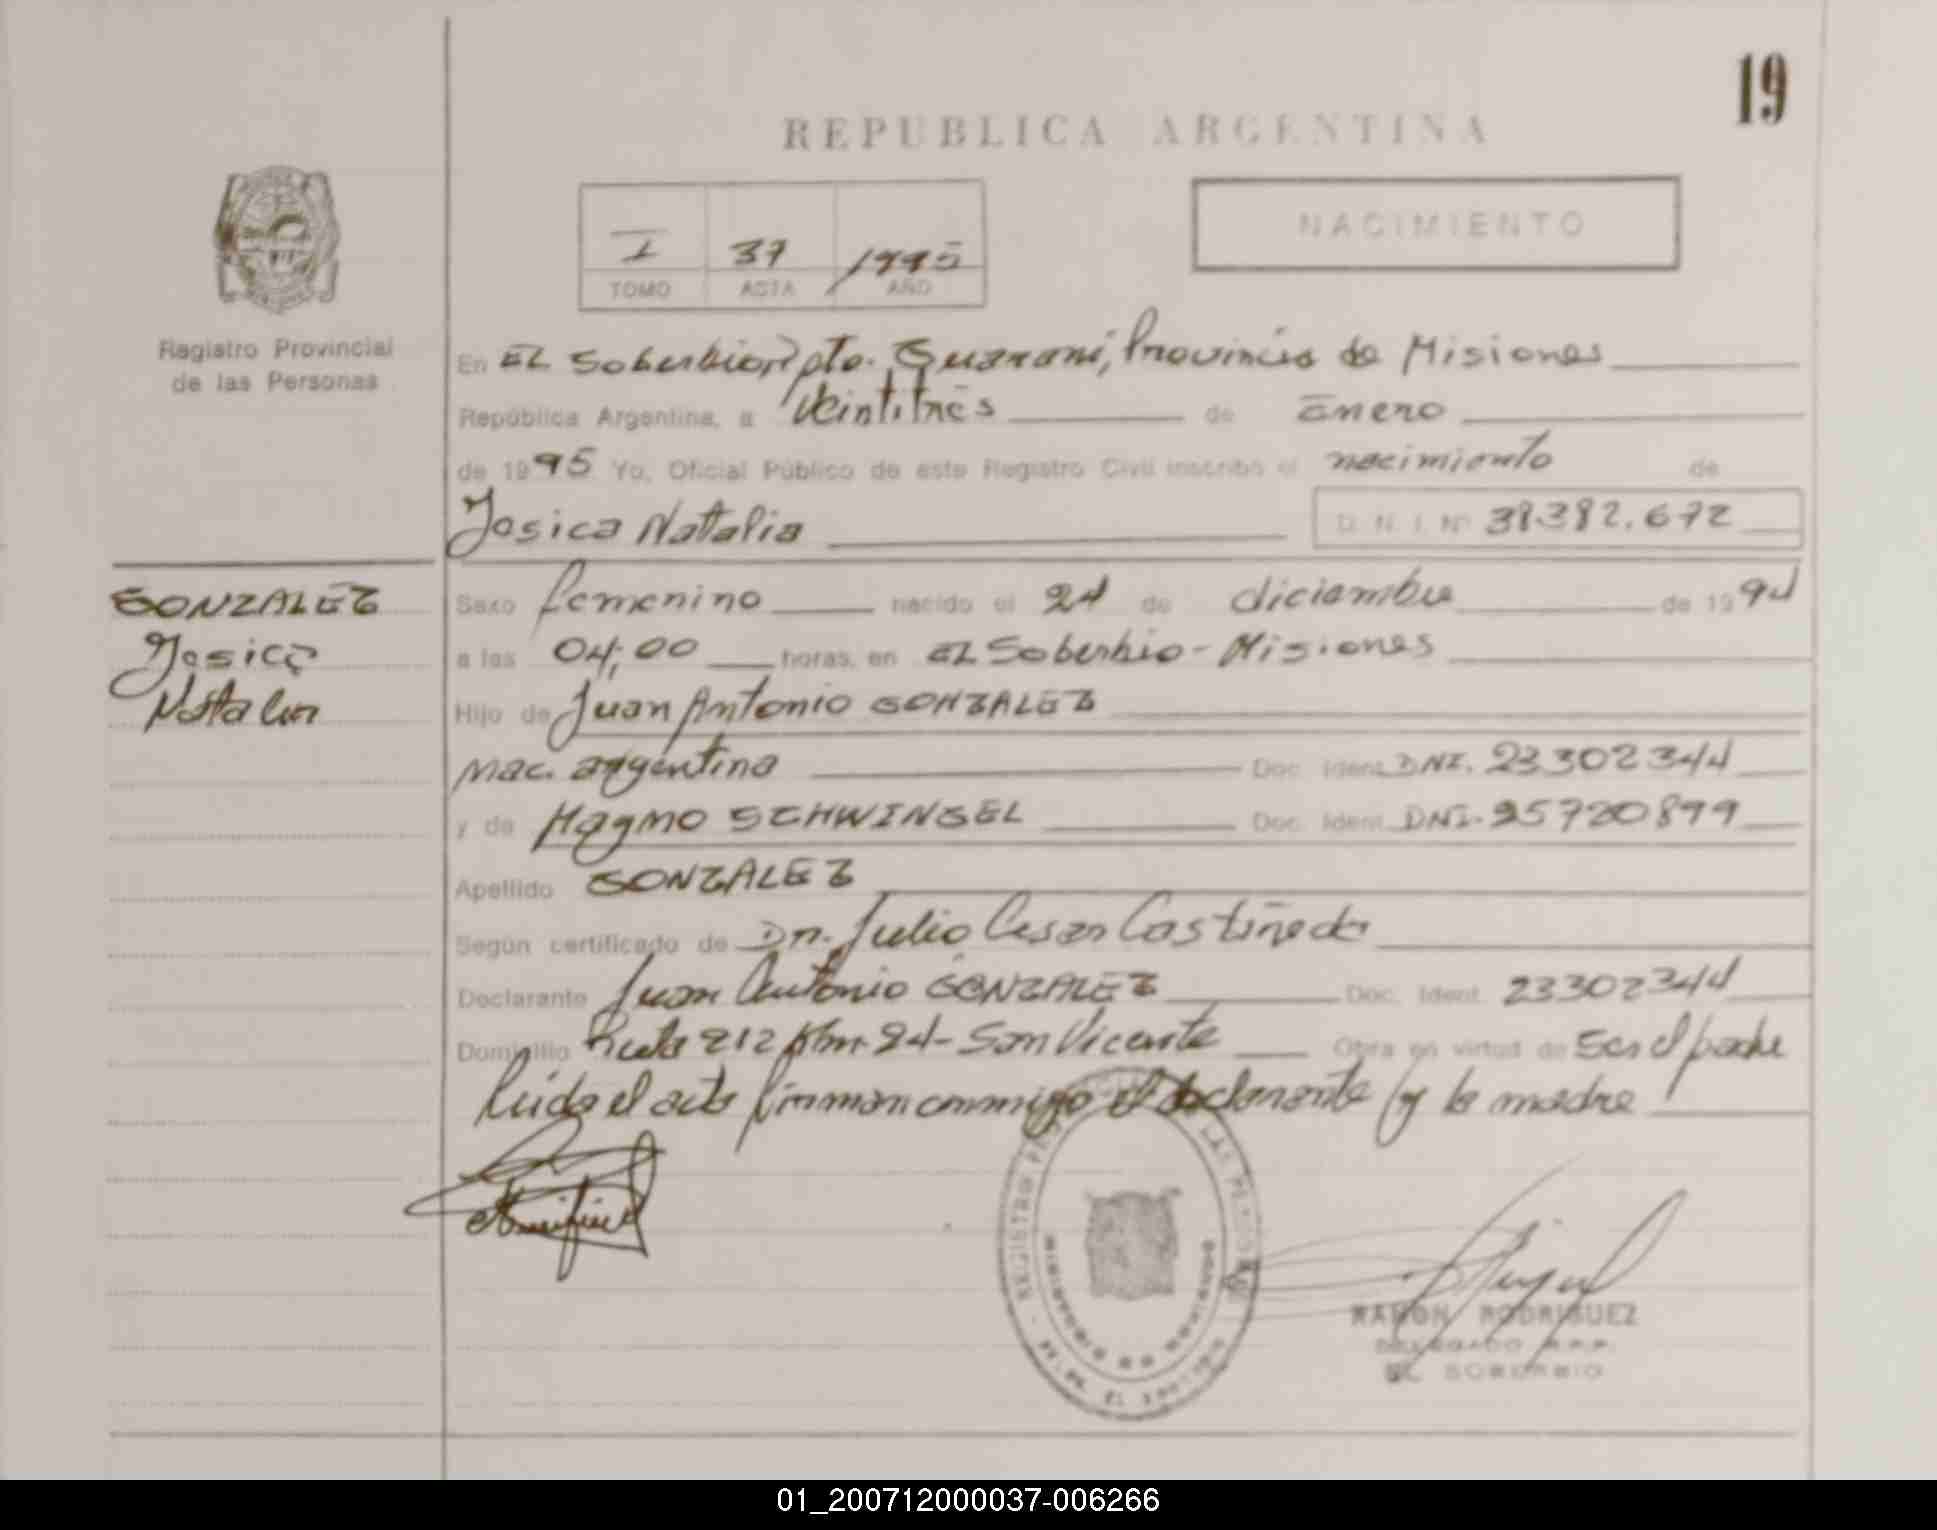 19
REPUBLICA ARGENTINA
I 37 1995
TOMO ACTA AÑO
NACIMIENTO
Registro Provincial
de las Personas
En EL Soberbio, Dpto. Guarani, Provincia de Misiones
República Argentina, a Veintitrés de Enero
de 1995 Yo, Oficial Público de este Registro Civil inscribo el nacimiento de
Jesica Natalia D.N.I. Nº 38.382.672
GONZALEZ
Jesica
Natalia
Sexo femenino nacido el 24 de diciembre de 1994
a las 04,00 horas, en EL Soberbio - Misiones
Hijo de Juan Antonio GONZALEZ
nac. argentina Doc. Ident. DNI. 23302344
y de Magno SCHWINGEL Doc. Ident. DNI. 25720899
Apellido GONZALEZ
Según certificado de Dr. Julio Cesar Castiñeda
Declarante Juan Antonio GONZALEZ Doc. Ident. 23302344
Domicilio Ruta 212 Km 24 - San Vicente Obra en virtud de Ser el padre
leida el acta firman conmigo el declarante y la madre
REGISTRO LAS PERSONAS
MISIONES
RAMON RODRIGUEZ
DELEGADO R.P.P.
EL SOBERBIO
01_200712000037-006266